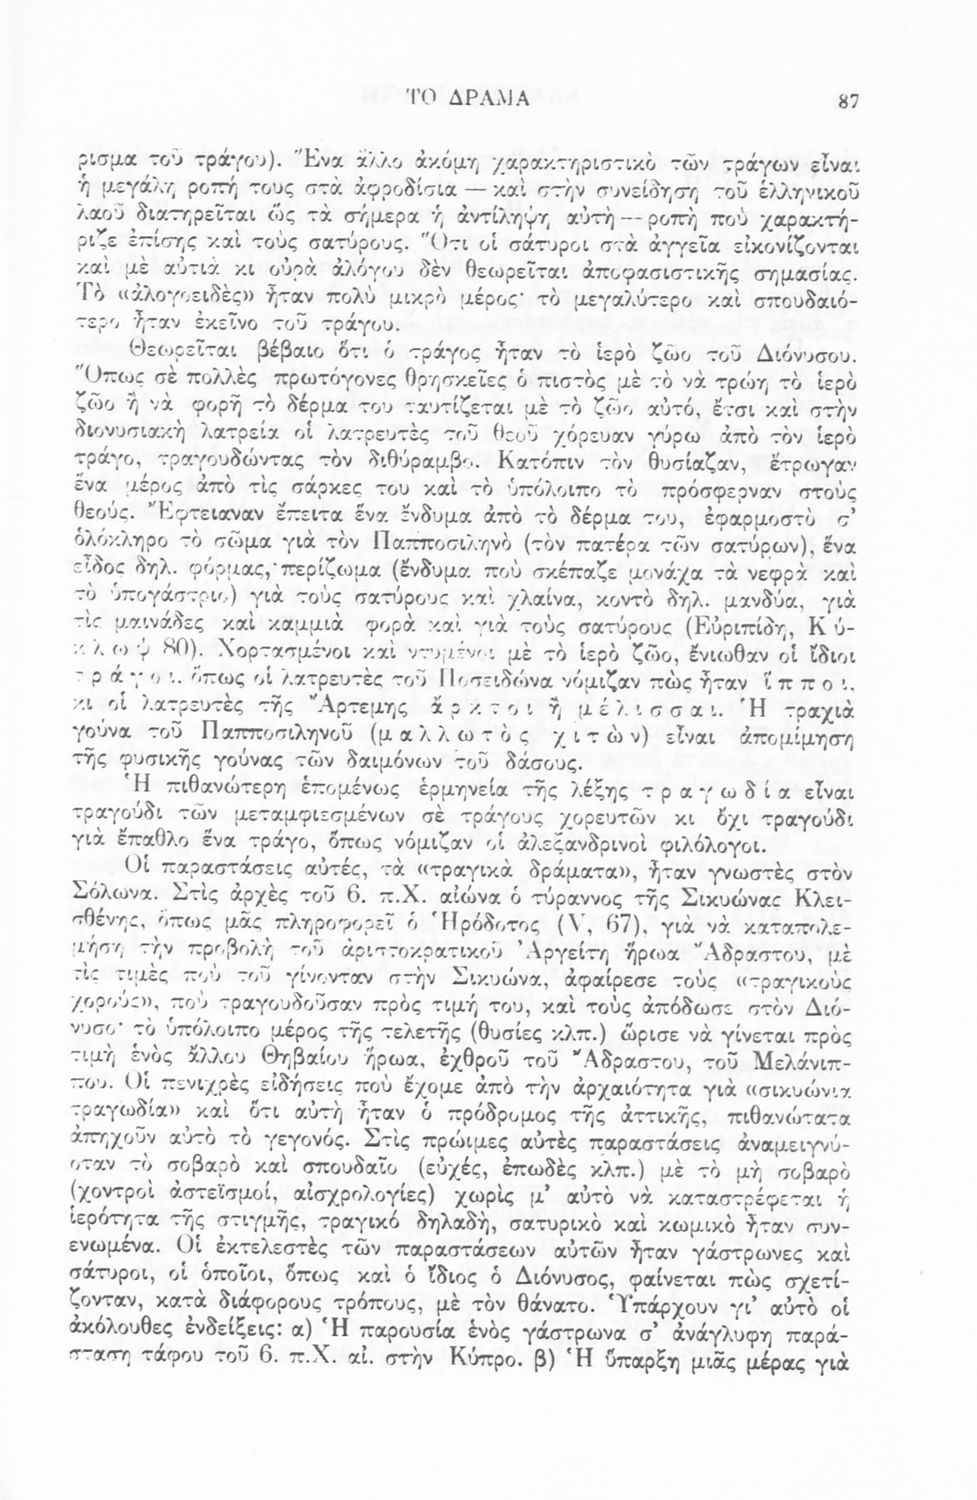 ΤΟ ΔΡΑΜΑ 87
ρισμα τοῦ τράγου). Ἕνα ἄλλο ἀκόμη χαρακτηριστικὸ τῶν τράγων εἶναι
ἡ μεγάλη ροπή τους στὰ ἀφροδίσια — καὶ στὴν συνείδηση τοῦ ἑλληνικοῦ
λαοῦ διατηρεῖται ὣς τὰ σήμερα ἡ ἀντίληψη αὐτὴ — ροπὴ ποὺ χαρακτή-
ριζε ἐπίσης καὶ τοὺς σατύρους. Ὅτι οἱ σάτυροι στὰ ἀγγεῖα εἰκονίζονται
καὶ μὲ αὐτιὰ κι οὐρὰ ἀλόγου δὲν θεωρεῖται ἀποφασιστικῆς σημασίας.
Τὸ «ἀλογοειδὲς» ἦταν πολὺ μικρὸ μέρος· τὸ μεγαλύτερο καὶ σπουδαιό-
τερο ἦταν ἐκεῖνο τοῦ τράγου.
Θεωρεῖται βέβαιο ὅτι ὁ τράγος ἦταν τὸ ἱερὸ ζῶο τοῦ Διόνυσου.
Ὅπως σὲ πολλὲς πρωτόγονες θρησκεῖες ὁ πιστὸς μὲ τὸ νὰ τρώη τὸ ἱερὸ
ζῶο ἢ νὰ φορῆ τὸ δέρμα του ταυτίζεται μὲ τὸ ζῶο αὐτό, ἔτσι καὶ στὴν
διονυσιακὴ λατρεία οἱ λατρευτὲς τοῦ θεοῦ χόρευαν γύρω ἀπὸ τὸν ἱερὸ
τράγο, τραγουδώντας τὸν διθύραμβο. Κατόπιν τὸν θυσίαζαν, ἔτρωγαν
ἕνα μέρος ἀπὸ τὶς σάρκες του καὶ τὸ ὑπόλοιπο τὸ πρόσφερναν στοὺς
θεούς. Ἔφτειαναν ἔπειτα ἕνα ἔνδυμα ἀπὸ τὸ δέρμα του, ἐφαρμοστὸ σ’
ὁλόκληρο τὸ σῶμα γιὰ τὸν Παπποσιληνὸ (τὸν πατέρα τῶν σατύρων), ἕνα
εἶδος δηλ. φόρμας, περίζωμα (ἔνδυμα ποὺ σκέπαζε μονάχα τὰ νεφρὰ καὶ
τὸ ὑπογάστριο) γιὰ τοὺς σατύρους καὶ χλαίνα, κοντὸ δηλ. μανδύα, γιὰ
τὶς μαινάδες καὶ καμμιὰ φορὰ καὶ γιὰ τοὺς σατύρους (Εὐριπίδη, Κ ύ-
κ λ ω ψ 80). Χορτασμένοι καὶ ντυμένοι μὲ τὸ ἱερὸ ζῶο, ἔνιωθαν οἱ ἴδιοι
τ ρ ά γ ο ι, ὅπως οἱ λατρευτὲς τοῦ Ποσειδώνα νόμιζαν πὼς ἦταν ἵ π π ο ι,
κι οἱ λατρευτὲς τῆς Ἄρτεμης ἄ ρ κ τ ο ι ἢ μ έ λ ι σ σ α ι. Ἡ τραχιὰ
γούνα τοῦ Παπποσιληνοῦ (μ α λ λ ω τ ὸ ς χ ι τ ὼ ν) εἶναι ἀπομίμηση
τῆς φυσικῆς γούνας τῶν δαιμόνων τοῦ δάσους.
Ἡ πιθανώτερη ἑπομένως ἑρμηνεία τῆς λέξης τ ρ α γ ω δ ί α εἶναι
τραγούδι τῶν μεταμφιεσμένων σὲ τράγους χορευτῶν κι ὄχι τραγούδι
γιὰ ἔπαθλο ἕνα τράγο, ὅπως νόμιζαν οἱ ἀλεξανδρινοὶ φιλόλογοι.
Οἱ παραστάσεις αὐτές, τὰ «τραγικὰ δράματα», ἦταν γνωστὲς στὸν
Σόλωνα. Στὶς ἀρχὲς τοῦ 6. π.Χ. αἰώνα ὁ τύραννος τῆς Σικυώνας Κλει-
σθένης, ὅπως μᾶς πληροφορεῖ ὁ Ἡρόδοτος (V, 67), γιὰ νὰ καταπολε-
μήση τὴν προβολὴ τοῦ ἀριστοκρατικοῦ Ἀργείτη ἥρωα Ἄδραστου, μὲ
τὶς τιμὲς ποὺ τοῦ γίνονταν στὴν Σικυώνα, ἀφαίρεσε τοὺς «τραγικοὺς
χορούς», ποὺ τραγουδοῦσαν πρὸς τιμή του, καὶ τοὺς ἀπόδωσε στὸν Διό-
νυσο· τὸ ὑπόλοιπο μέρος τῆς τελετῆς (θυσίες κλπ.) ὥρισε νὰ γίνεται πρὸς
τιμὴ ἑνὸς ἄλλου Θηβαίου ἥρωα, ἐχθροῦ τοῦ Ἄδραστου, τοῦ Μελάνιπ-
που. Οἱ πενιχρὲς εἰδήσεις ποὺ ἔχομε ἀπὸ τὴν ἀρχαιότητα γιὰ «σικυώνια
τραγωδία» καὶ ὅτι αὐτὴ ἦταν ὁ πρόδρομος τῆς ἀττικῆς, πιθανώτατα
ἀπηχοῦν αὐτὸ τὸ γεγονός. Στὶς πρώιμες αὐτὲς παραστάσεις ἀναμειγνύ-
οταν τὸ σοβαρὸ καὶ σπουδαῖο (εὐχές, ἐπωδὲς κλπ.) μὲ τὸ μὴ σοβαρὸ
(χοντροὶ ἀστεϊσμοί, αἰσχρολογίες) χωρὶς μ’ αὐτὸ νὰ καταστρέφεται ἡ
ἱερότητα τῆς στιγμῆς, τραγικό δηλαδὴ, σατυρικὸ καὶ κωμικὸ ἦταν συν-
ενωμένα. Οἱ ἐκτελεστὲς τῶν παραστάσεων αὐτῶν ἦταν γάστρωνες καὶ
σάτυροι, οἱ ὁποῖοι, ὅπως καὶ ὁ ἴδιος ὁ Διόνυσος, φαίνεται πὼς σχετί-
ζονταν, κατὰ διάφορους τρόπους, μὲ τὸν θάνατο. Ὑπάρχουν γι’ αὐτὸ οἱ
ἀκόλουθες ἐνδείξεις: α) Ἡ παρουσία ἑνὸς γάστρωνα σ’ ἀνάγλυφη παρά-
σταση τάφου τοῦ 6. π.Χ. αἰ. στὴν Κύπρο. β) Ἡ ὕπαρξη μιᾶς μέρας γιὰ